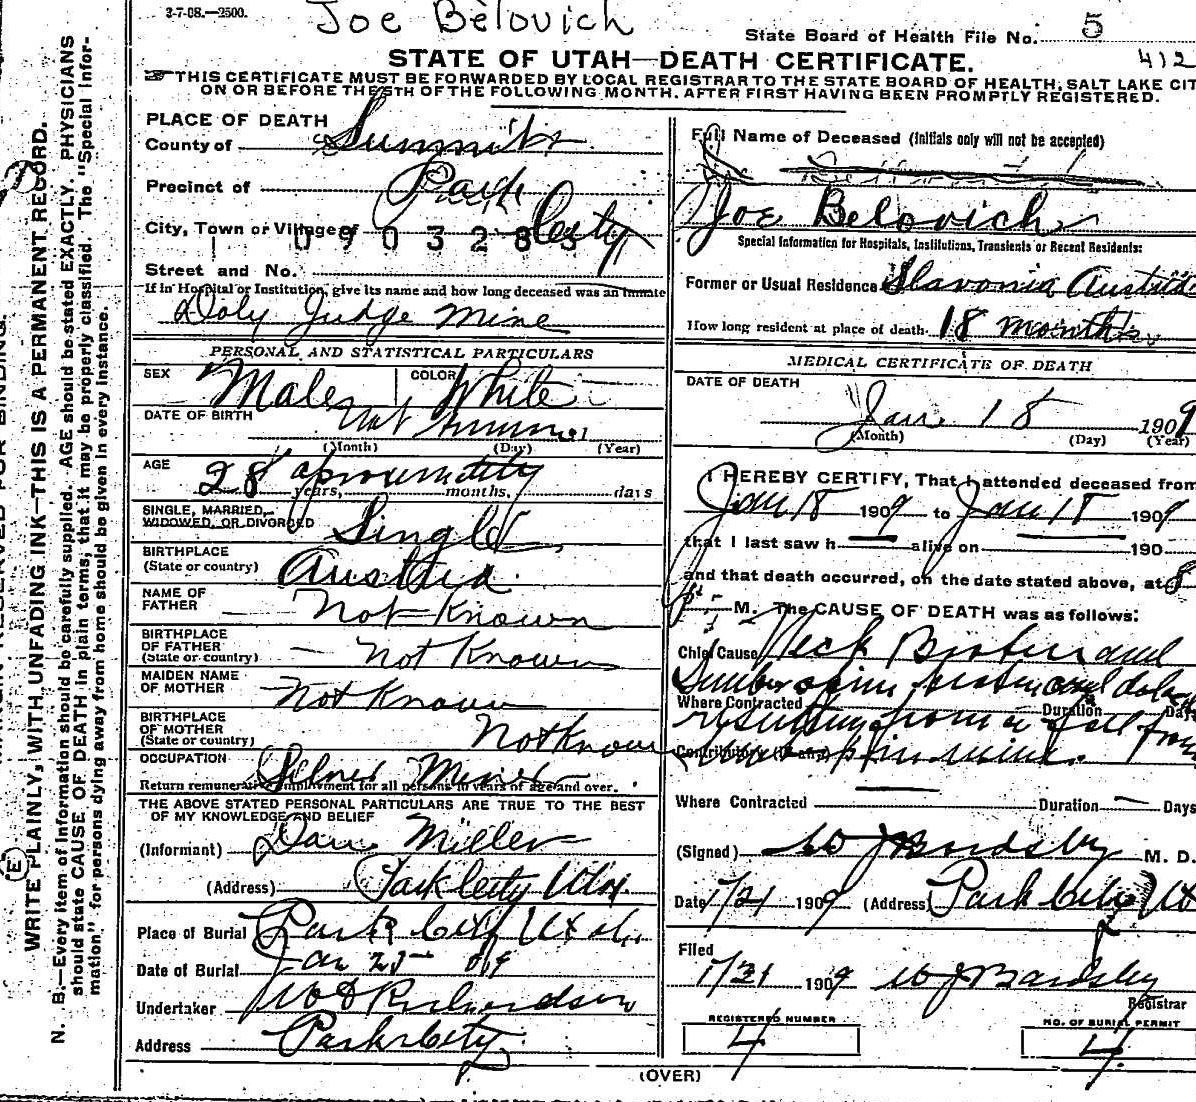 3-7-08.—2500.
Joe Belovich
State Board of Health File No. 5
412
STATE OF UTAH—DEATH CERTIFICATE.
THIS CERTIFICATE MUST BE FORWARDED BY LOCAL REGISTRAR TO THE STATE BOARD OF HEALTH, SALT LAKE CIT
ON OR BEFORE THE 5TH OF THE FOLLOWING MONTH, AFTER FIRST HAVING BEEN PROMPTLY REGISTERED.
WRITE PLAINLY, WITH UNFADING INK—THIS IS A PERMANENT RECORD.
N. B.—Every item of information should be carefully supplied. AGE should be stated EXACTLY. PHYSICIANS
should state CAUSE OF DEATH in plain terms, that it may be properly classified. The "Special Infor-
mation" for persons dying away from home should be given in every instance.
PLACE OF DEATH
County of Summit
Precinct of Park
City, Town or Village of City
0903285
Street and No.
If in Hospital or Institution, give its name and how long deceased was an inmate
Daly Judge Mine
PERSONAL AND STATISTICAL PARTICULARS
SEX Male COLOR White
DATE OF BIRTH Not
(Month) (Day) (Year)
AGE 28 aproximately
years, months, days
SINGLE, MARRIED,
WIDOWED, OR DIVORCED Single
BIRTHPLACE
(State or country) Austria
NAME OF
FATHER Not Known
BIRTHPLACE
OF FATHER
(State or country) Not Known
MAIDEN NAME
OF MOTHER Not Known
BIRTHPLACE
OF MOTHER
(State or country) Not Known
OCCUPATION Silver Miner
Return remunerative employment for all persons 10 years of age and over.
THE ABOVE STATED PERSONAL PARTICULARS ARE TRUE TO THE BEST
OF MY KNOWLEDGE AND BELIEF
(Informant) Dan Miller
(Address) Park City Utah
Place of Burial Park City Utah
Date of Burial Jan 09
Undertaker Richardson
Address Park City
Full Name of Deceased (Initials only will not be accepted)
Joe
Joe Belovich
Special Information for Hospitals, Institutions, Transients or Recent Residents:
Former or Usual Residence Slavonia Austria
How long resident at place of death. 18 months
MEDICAL CERTIFICATE OF DEATH
DATE OF DEATH
Jan 18 1909
(Month) (Day) (Year)
I HEREBY CERTIFY, That I attended deceased from
Jan 18 1909 to Jan 18 1909
that I last saw h alive on 190
and that death occurred, on the date stated above, at 8
M. The CAUSE OF DEATH was as follows:
Chief Cause Neck Broken and
Where Contracted Duration Days
resulting from a fall from
Contributory in mine.
Where Contracted Duration Days
(Signed) W J Bardsley M. D.
Date 1/21 1909 (Address) Park City Ut
Filed
1/21 1909 W J Bardsley
Registrar
REGISTERED NUMBER
4
NO. OF BURIAL PERMIT
4
(OVER)